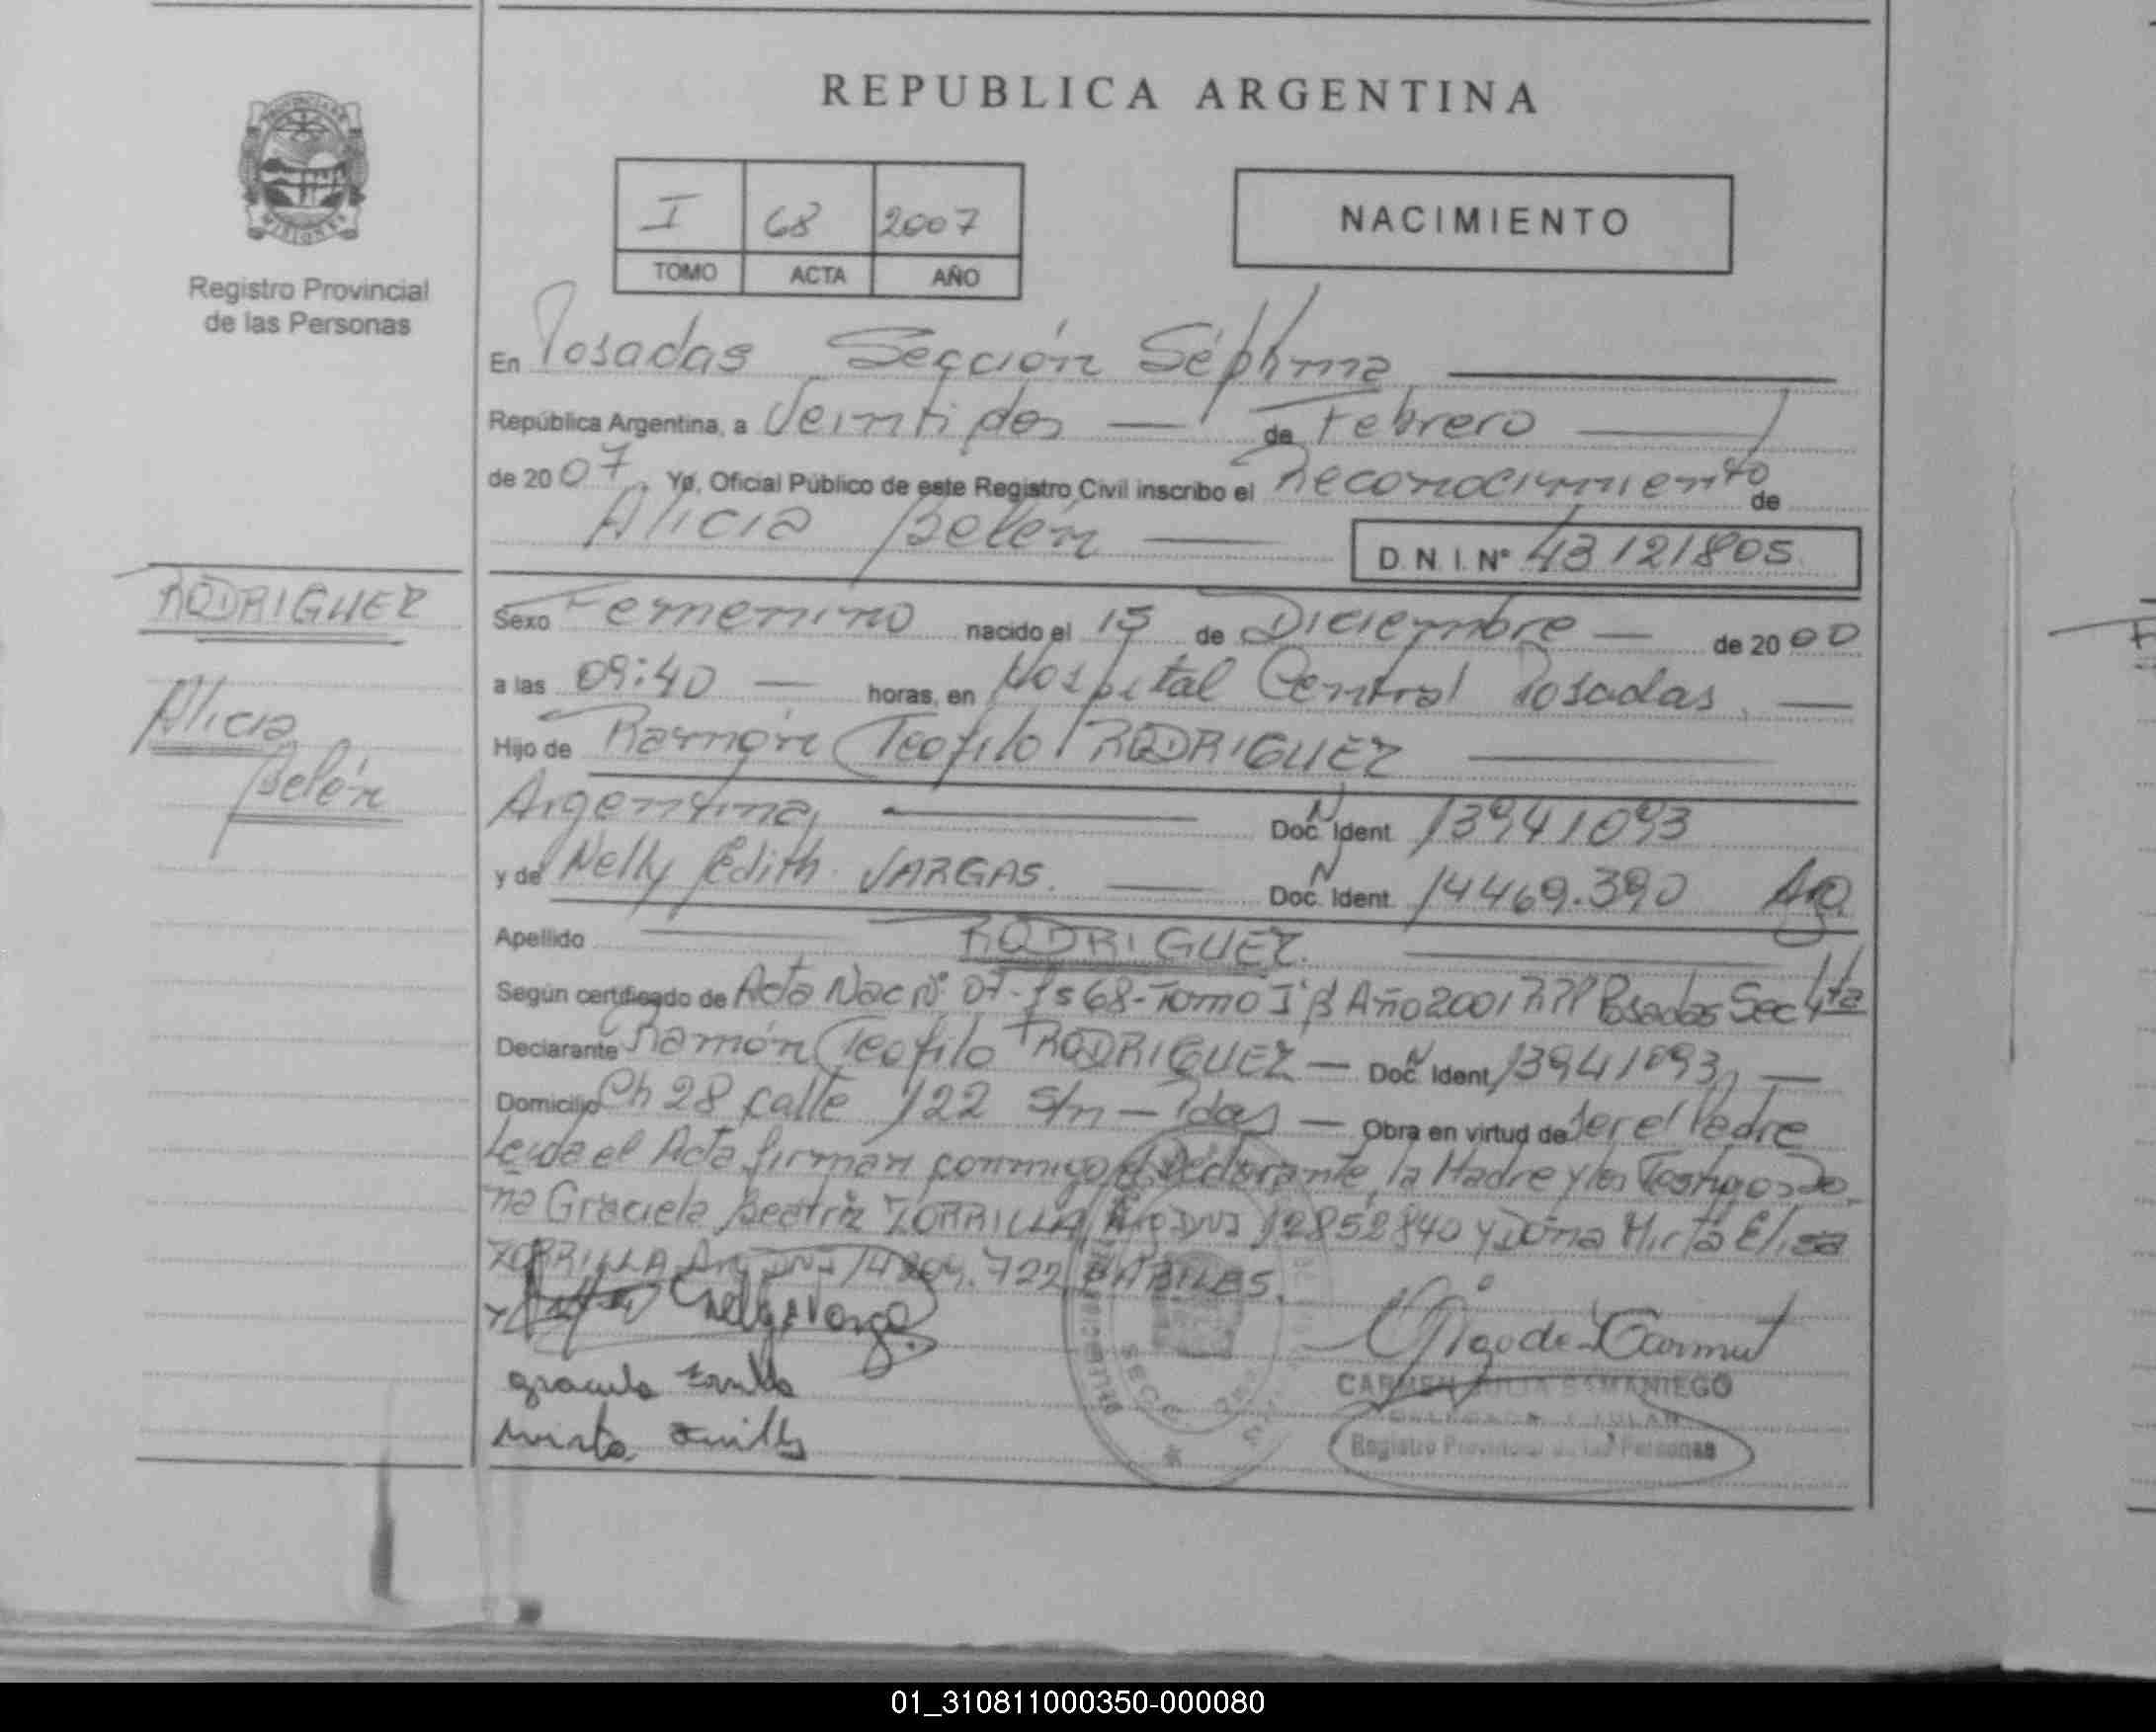 REPUBLICA ARGENTINA
PROVINCIA DE
MISIONES
Registro Provincial
de las Personas
I 68 2007
TOMO ACTA AÑO
NACIMIENTO
En Posadas Sección Séptima
República Argentina, a Veintidos de Febrero
de 2007. Yo, Oficial Público de este Registro Civil inscribo el Reconocimiento de
Alicia Belén D.N.I. Nº 43121805
RODRIGUEZ
Alicia
Belén
Sexo Femenino nacido el 15 de Diciembre de 2000
a las 09:40 horas, en Hospital Central Posadas
Hijo de Ramón Teofilo RODRIGUEZ
Argentina, Doc. Ident. 13941093
y de Nelly Edith VARGAS. Doc. Ident. 14469.390 Arg
Apellido RODRIGUEZ.
Según certificado de Acta Nac Nº 07-Fs 68-Tomo I Año 2001 RPP Posadas Sec 4ta
Declarante Ramón Teofilo RODRIGUEZ Doc. Ident. 13941093,
Domicilio Ch 28 calle 122 S/n - Pdas Obra en virtud de ser el Padre
Leida el Acta firman conmigo el Declarante, la Madre y los Testigos Do
ña Graciela Beatriz ZORRILLA Arg DNI 12852840 y Doña Mirta Elisa
ZORRILLA Arg DNI 722 HABILES.
Graciela Zorrilla
Mirta Zorrilla
CARMEN JULIA SAMANIEGO
DELEGADA TITULAR
Registro Provincial de las Personas
01_310811000350-000080